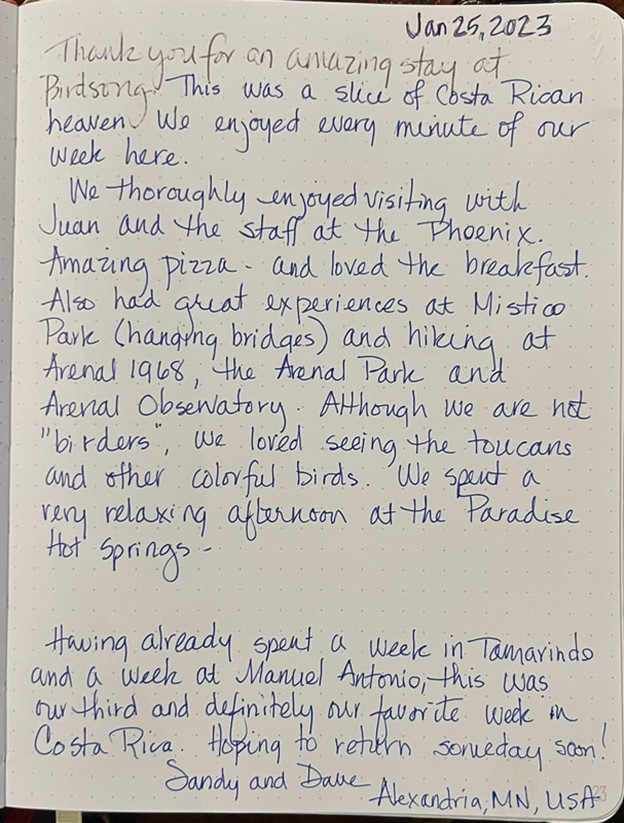 Jan 25, 2023
Thank you for an amazing stay at
Birdsong. This was a slice of Costa Rican
heaven. We enjoyed every minute of our
week here.
We thoroughly enjoyed visiting with
Juan and the staff at the Phoenix.
Amazing pizza - and loved the breakfast.
Also had great experiences at Mistico
Park (hanging bridges) and hiking at
Arenal 1968, the Arenal Park and
Arenal Observatory. Although we are not
"birders", we loved seeing the toucans
and other colorful birds. We spent a
very relaxing afternoon at the Paradise
Hot Springs -
Having already spent a week in Tamarindo
and a week at Manuel Antonio, this was
our third and definitely our favorite week in
Costa Rica. Hoping to return someday soon!
Sandy and Dave
Alexandria, MN, USA